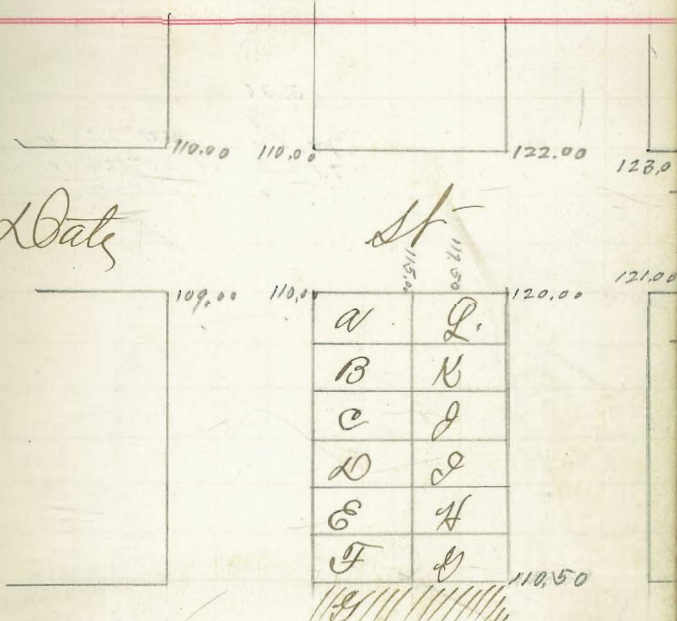 110.00 110.00 122.00 123.0
Date St
115.00 117.50
109.00 110.0 120.00 121.00
A L.
B K
C J
D I
E H
F G
110.50